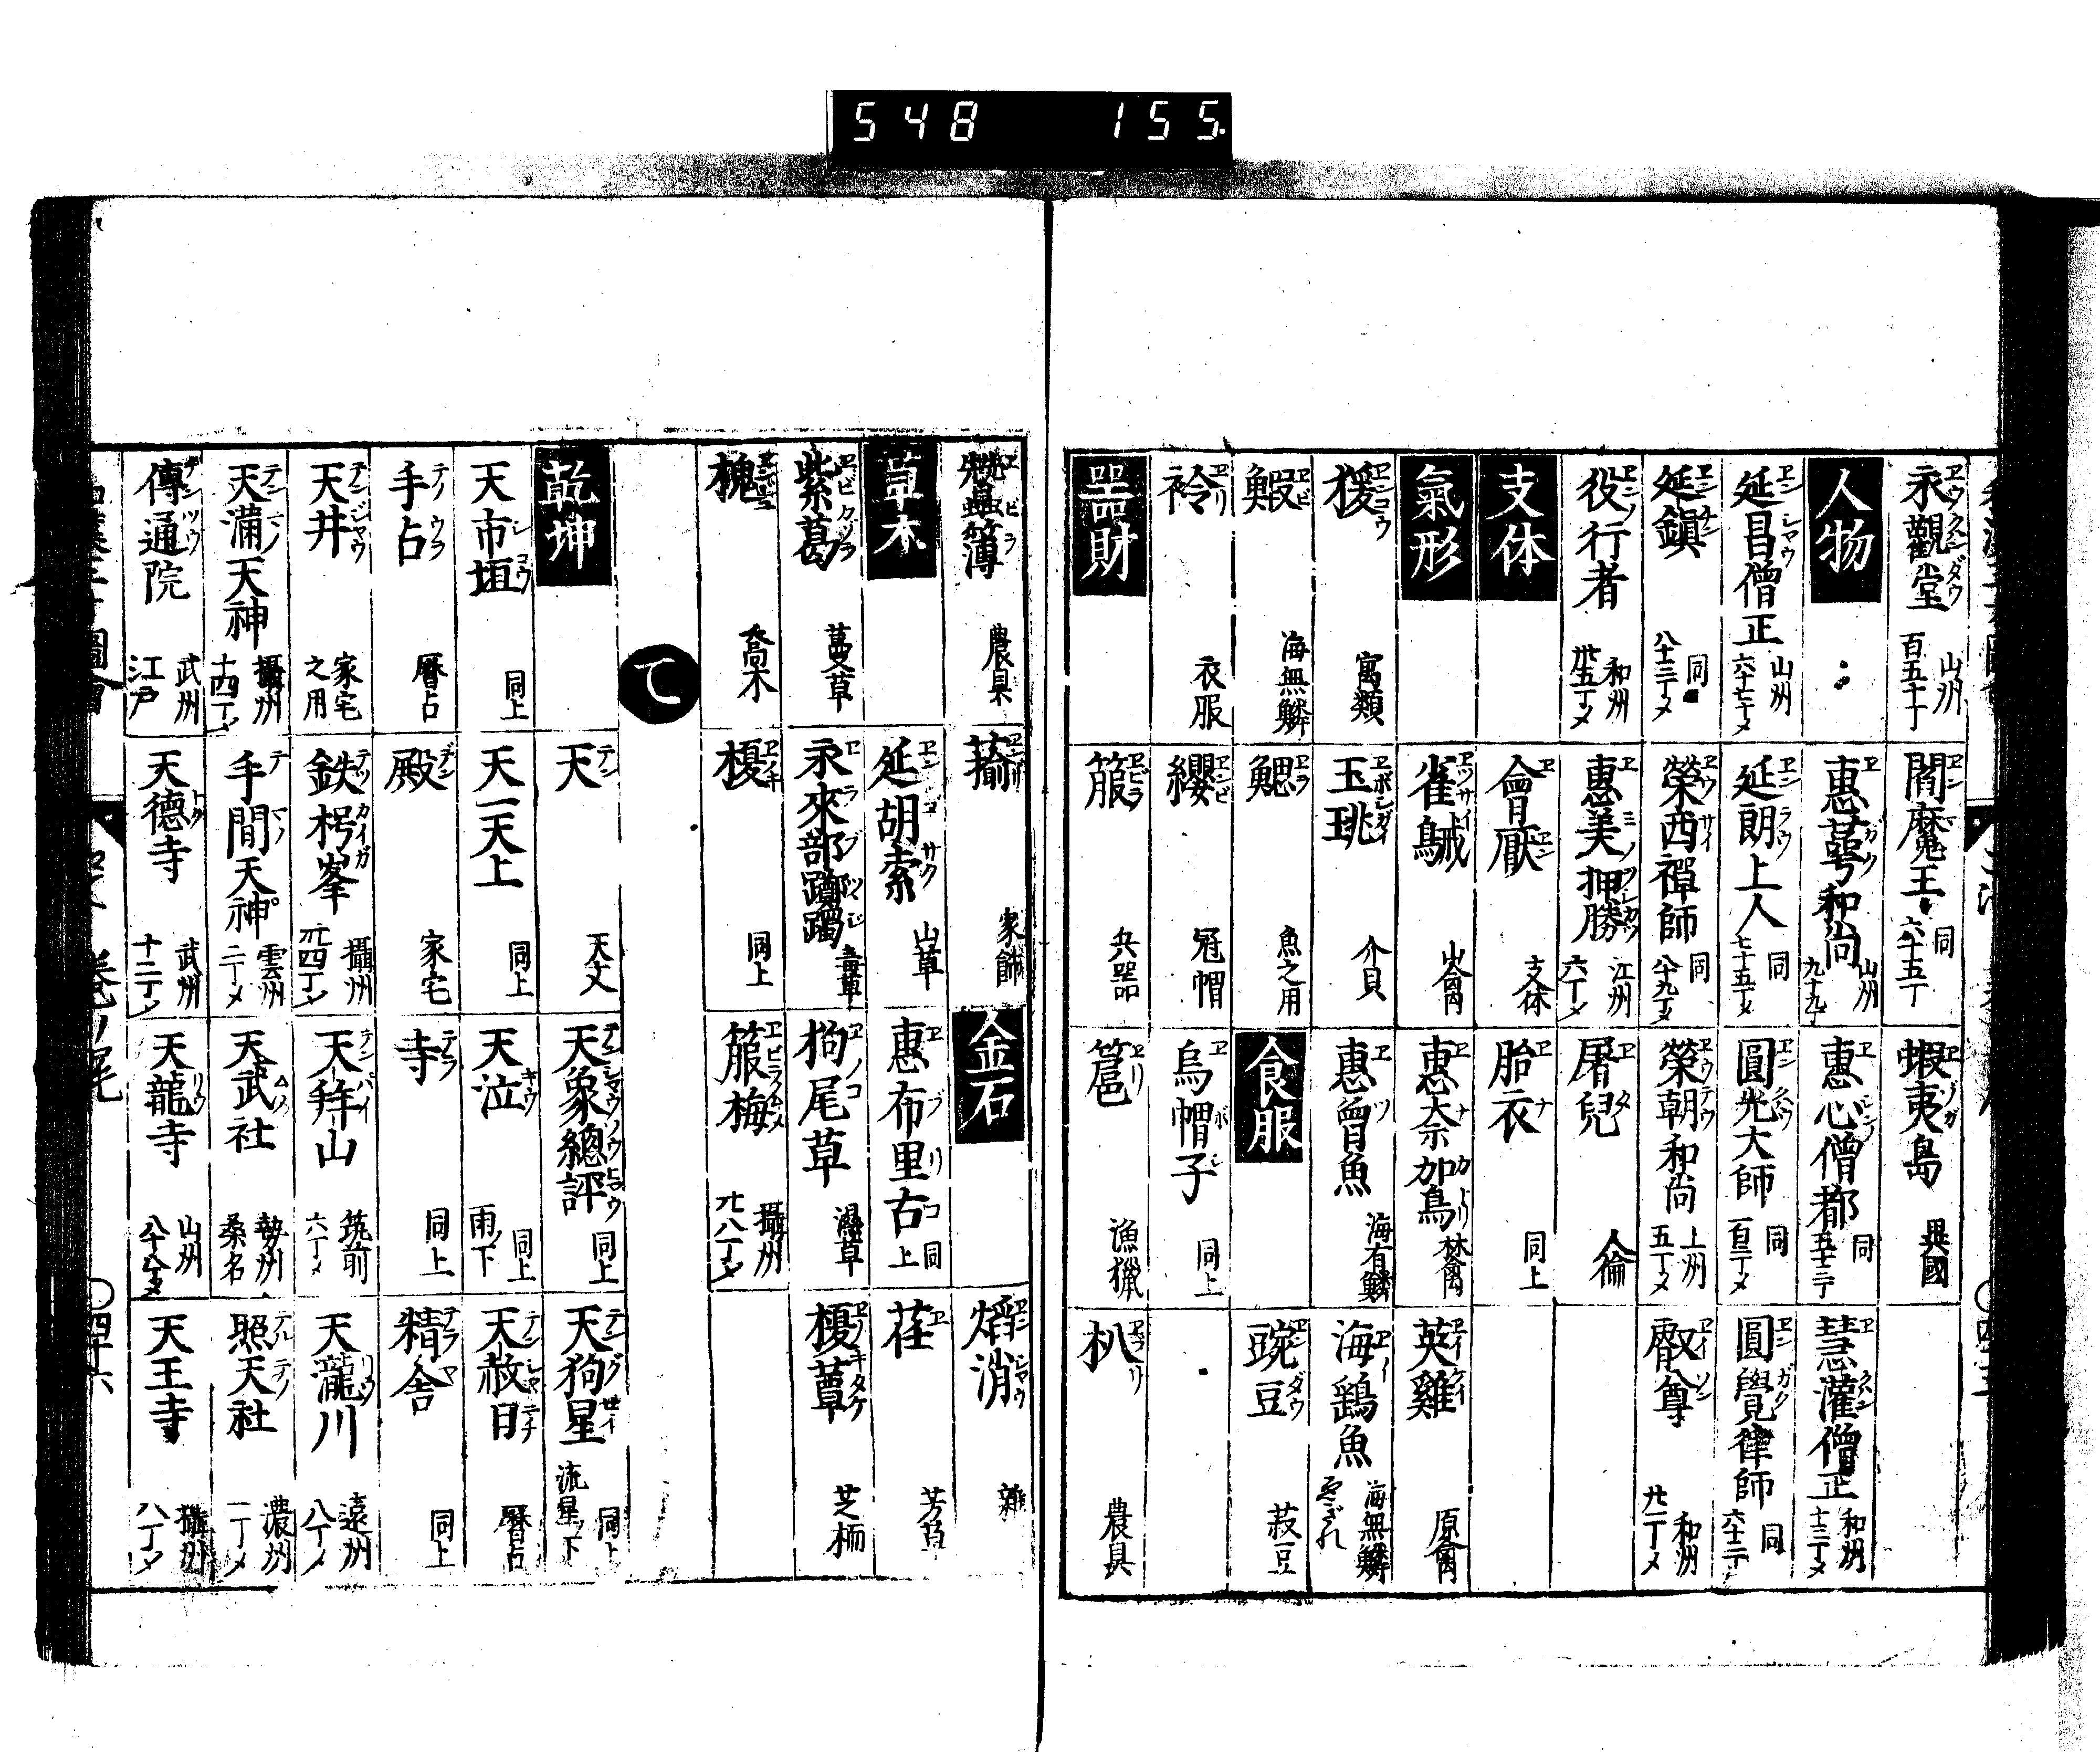 548 155
永觀堂 山州 百五十丁 閻魔王 同 六十五丁 蝦夷島 異國
人物 惠萼和尚 山州 九十九丁 惠心僧都 同 慧灌僧正 和州 十三丁メ
延昌僧正 山州 六十七丁メ 延朗上人 同 七十五丁メ 圓光大師 同 百二丁メ 圓覺律師 同 六十二丁
延鎮 同 八十三丁メ 榮西禪師 同 八十九丁メ 榮朝和尚 上州 五丁メ 叡尊 和州 廿一丁メ
役行者 和州 卅五丁メ 惠美押勝 江州 六丁メ 屠兒 人倫
支体 會厭 支体 胎衣 同上
氣形 山禽 惠奈加鳥 林禽 英雞 原禽
猨 寓類 玉珧 介貝 惠曾魚 海有鱗 海鷂魚 海無鱗
鰕 海無鱗 鰓 魚之用 食服 豌豆 菽豆
衿 衣服 纓 冠帽 烏帽子 同上
器財 箙 兵器 漁猟 朳 農具
農具 家飾 金石 焰消 雜
草木 延胡索 山草 惠布里古 同上 荏 芳草
紫葛 蔓草 永來部躑躅 毒草 狗尾草 濕草 榎蕈 芝栭
槐 喬木 榎 同上 箙梅 攝州 廿八丁メ
て
乾坤 天 天文 天象總評 同上 天狗星 同上 流星ノ下
天市垣 同上 天一天上 同上 天泣 同上 雨ノ下 天赦日 曆占
手占 曆占 殿 家宅 寺 同上 精舎 同上
天井 家宅之用 鉄枴峯 攝州 卅四丁メ 天拜山 筑前 六丁メ 天瀧川 遠州 八丁メ
天滿天神 攝州 十四丁メ 手間天神 雲州 二丁メ 天武社 勢州 桑名 照天社 濃州 一丁メ
傳通院 武州 江戸 天德寺 武州 十二丁メ 天龍寺 山州 天王寺 攝州 八丁メ